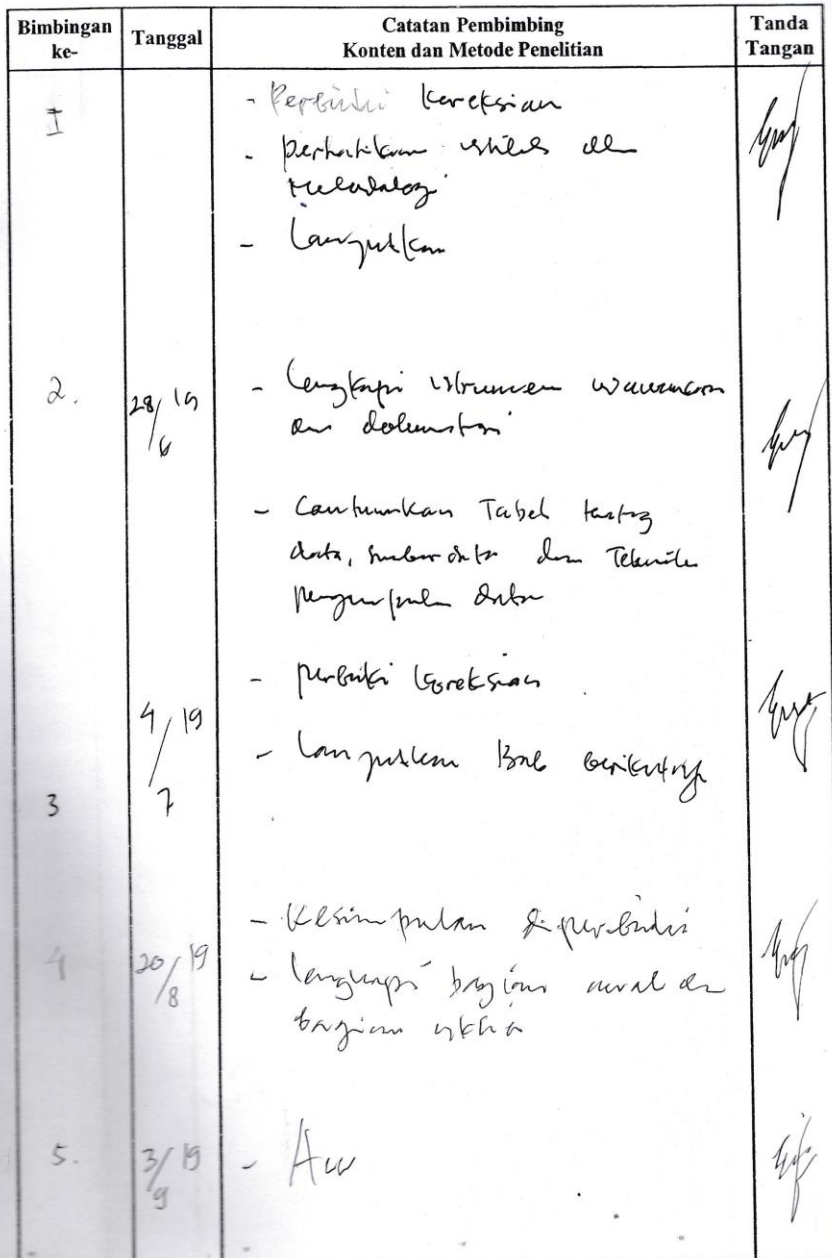 Bimbingan ke-
Tanggal
Catatan Pembimbing
Konten dan Metode Penelitian
Tanda Tangan
I
- Perbaiki koreksian
- perhatikan dan
Metodologi
- Lanjutkan
2.
28/6 19
- Lengkapi instrumen wawancara
dan dokumentasi
- Cantumkan Tabel tentang
data, sumber data dan Teknik
pengumpulan data
3
4/7 19
- perbaiki koreksian
- lanjutkan Bab berikutnya
4
20/8 19
- Kesimpulan diperbaiki
- lengkapi bagian awal dan
bagian akhir
5.
3/9 19
- Acc